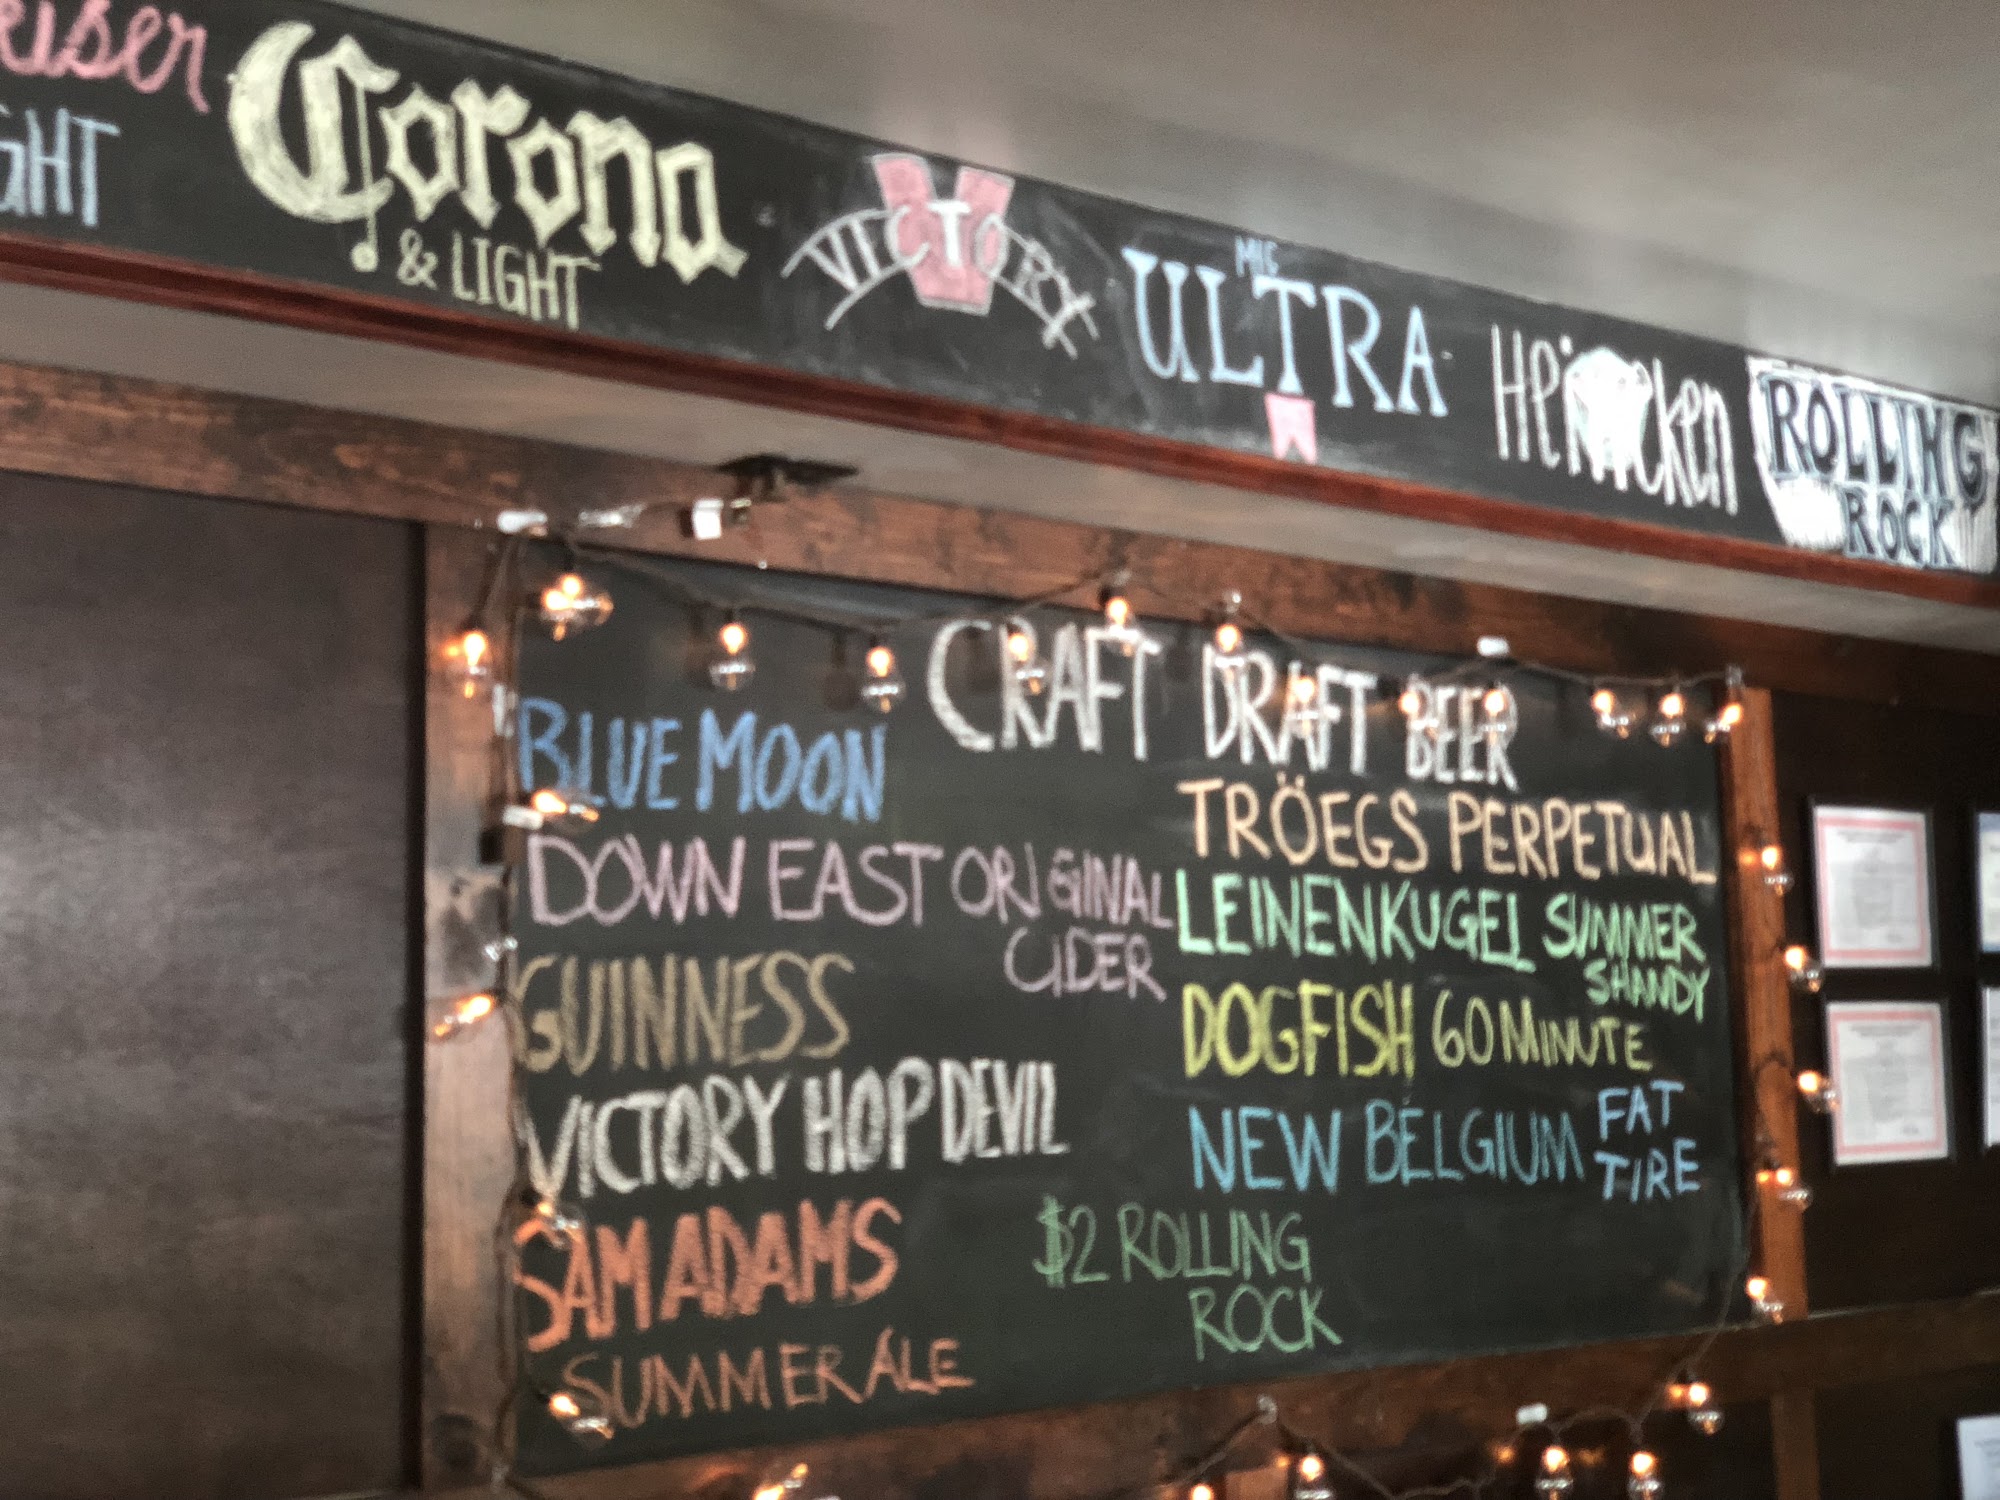 Corona
& LIGHT
VICTORY
MIC
ULTRA
Heineken
ROLLING
ROCK
CRAFT DRAFT BEER
BLUE MOON
DOWN EAST ORIGINAL
CIDER
GUINNESS
VICTORY HOP DEVIL
SAM ADAMS
SUMMER ALE
TRÖEGS PERPETUAL
LEINENKUGEL SUMMER
SHANDY
DOGFISH 60 MINUTE
NEW BELGIUM FAT
TIRE
$2 ROLLING
ROCK